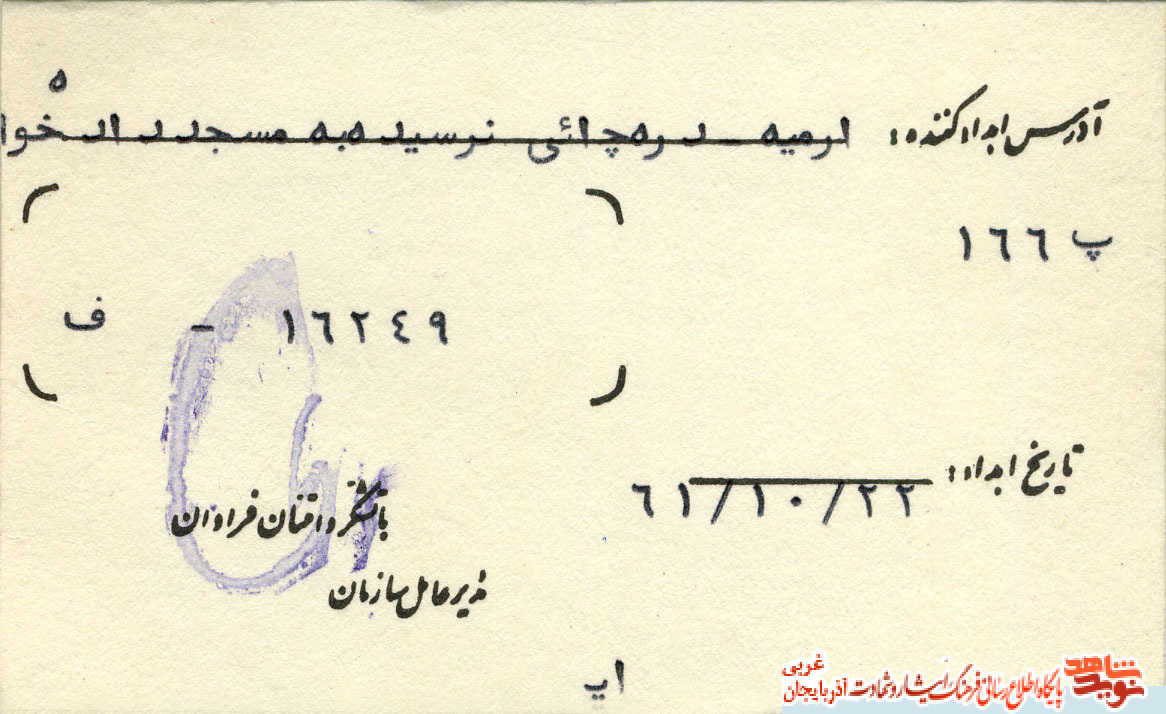 آدرس اهداء کننده: ارمیه - دره چائی نرسیده به مسجد رادخواه
پ ١٦٦
١٦٢٤٩ - ف
تاریخ اهداء: ٦١/١٠/٢٢
با تشکر و امتنان فراوان
مدیر عامل سازمان
اپ
نوید شاهد
پایگاه اطلاع رسانی فرهنگ ایثار و شهادت آذربایجان غربی